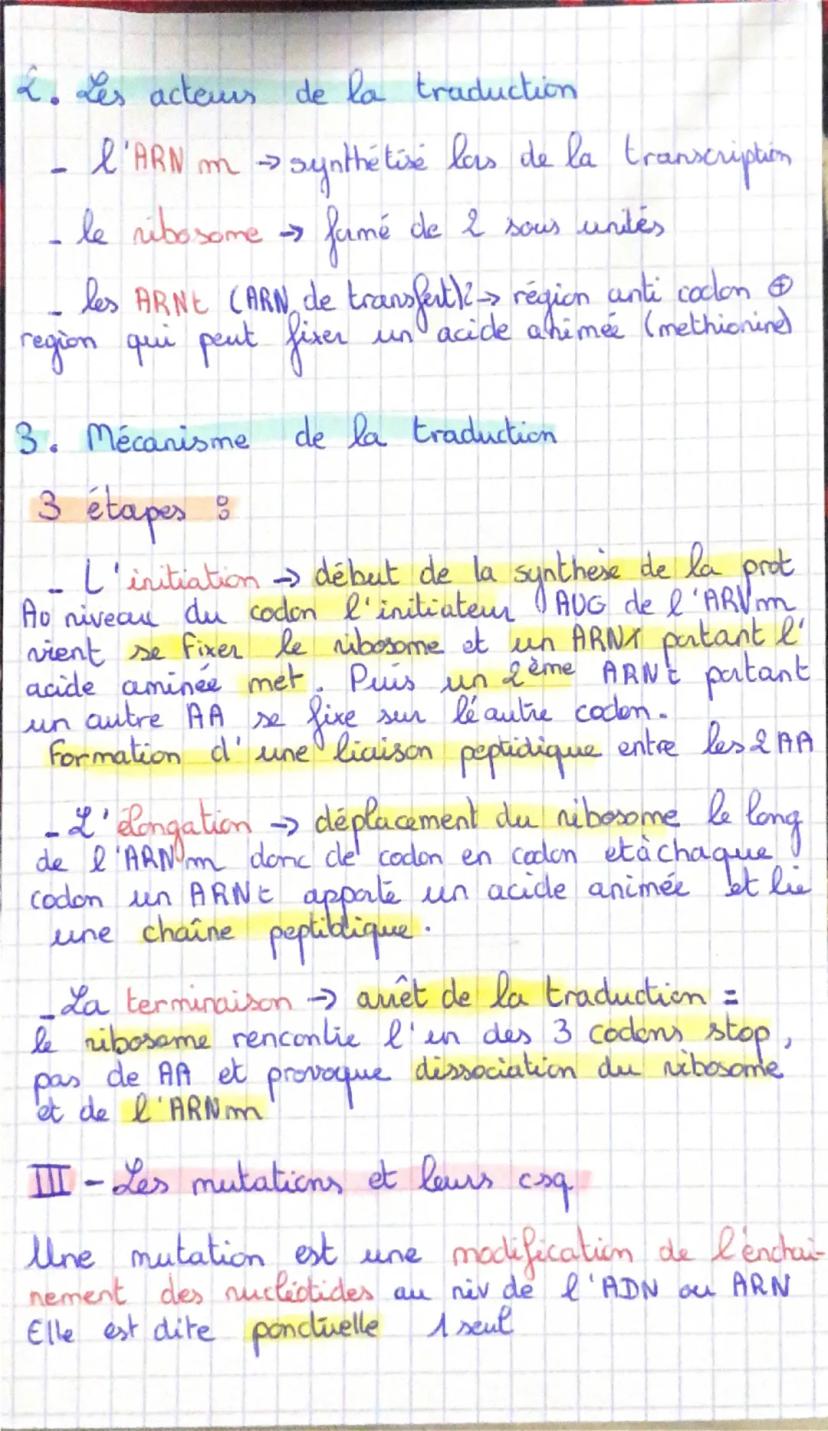 2. Les acteurs de la traduction
- l'ARN m → synthétisé lors de la transcription
- le ribosome → formé de 2 sous unités
- les ARNt (ARN de transfert) 2 → région anti codon ⊕
region qui peut fixer un acide animée (methionine)
3. Mécanisme de la traduction
3 étapes :
- L'initiation → début de la synthese de la prot
Au niveau du codon l'initiateur AUG de l'ARNm
vient se fixer le ribosome et un ARNt portant l'
acide aminée met. Puis un 2ème ARNt portant
un autre AA se fixe sur l'autre codon.
Formation d'une liaison peptidique entre les 2 AA
- L'élongation → déplacement du ribosome le long
de l'ARNm donc de codon en codon et à chaque
codon un ARNt apporte un acide animée et lie
une chaîne peptidique.
- La terminaison → arrêt de la traduction =
le ribosome rencontre l'un des 3 codons stop,
pas de AA et provoque dissociation du ribosome
et de l'ARNm
III - Les mutations et leurs csq
Une mutation est une modification de l'enchai-
nement des nucléotides au niv de l'ADN ou ARN
Elle est dite ponctuelle 1 seul